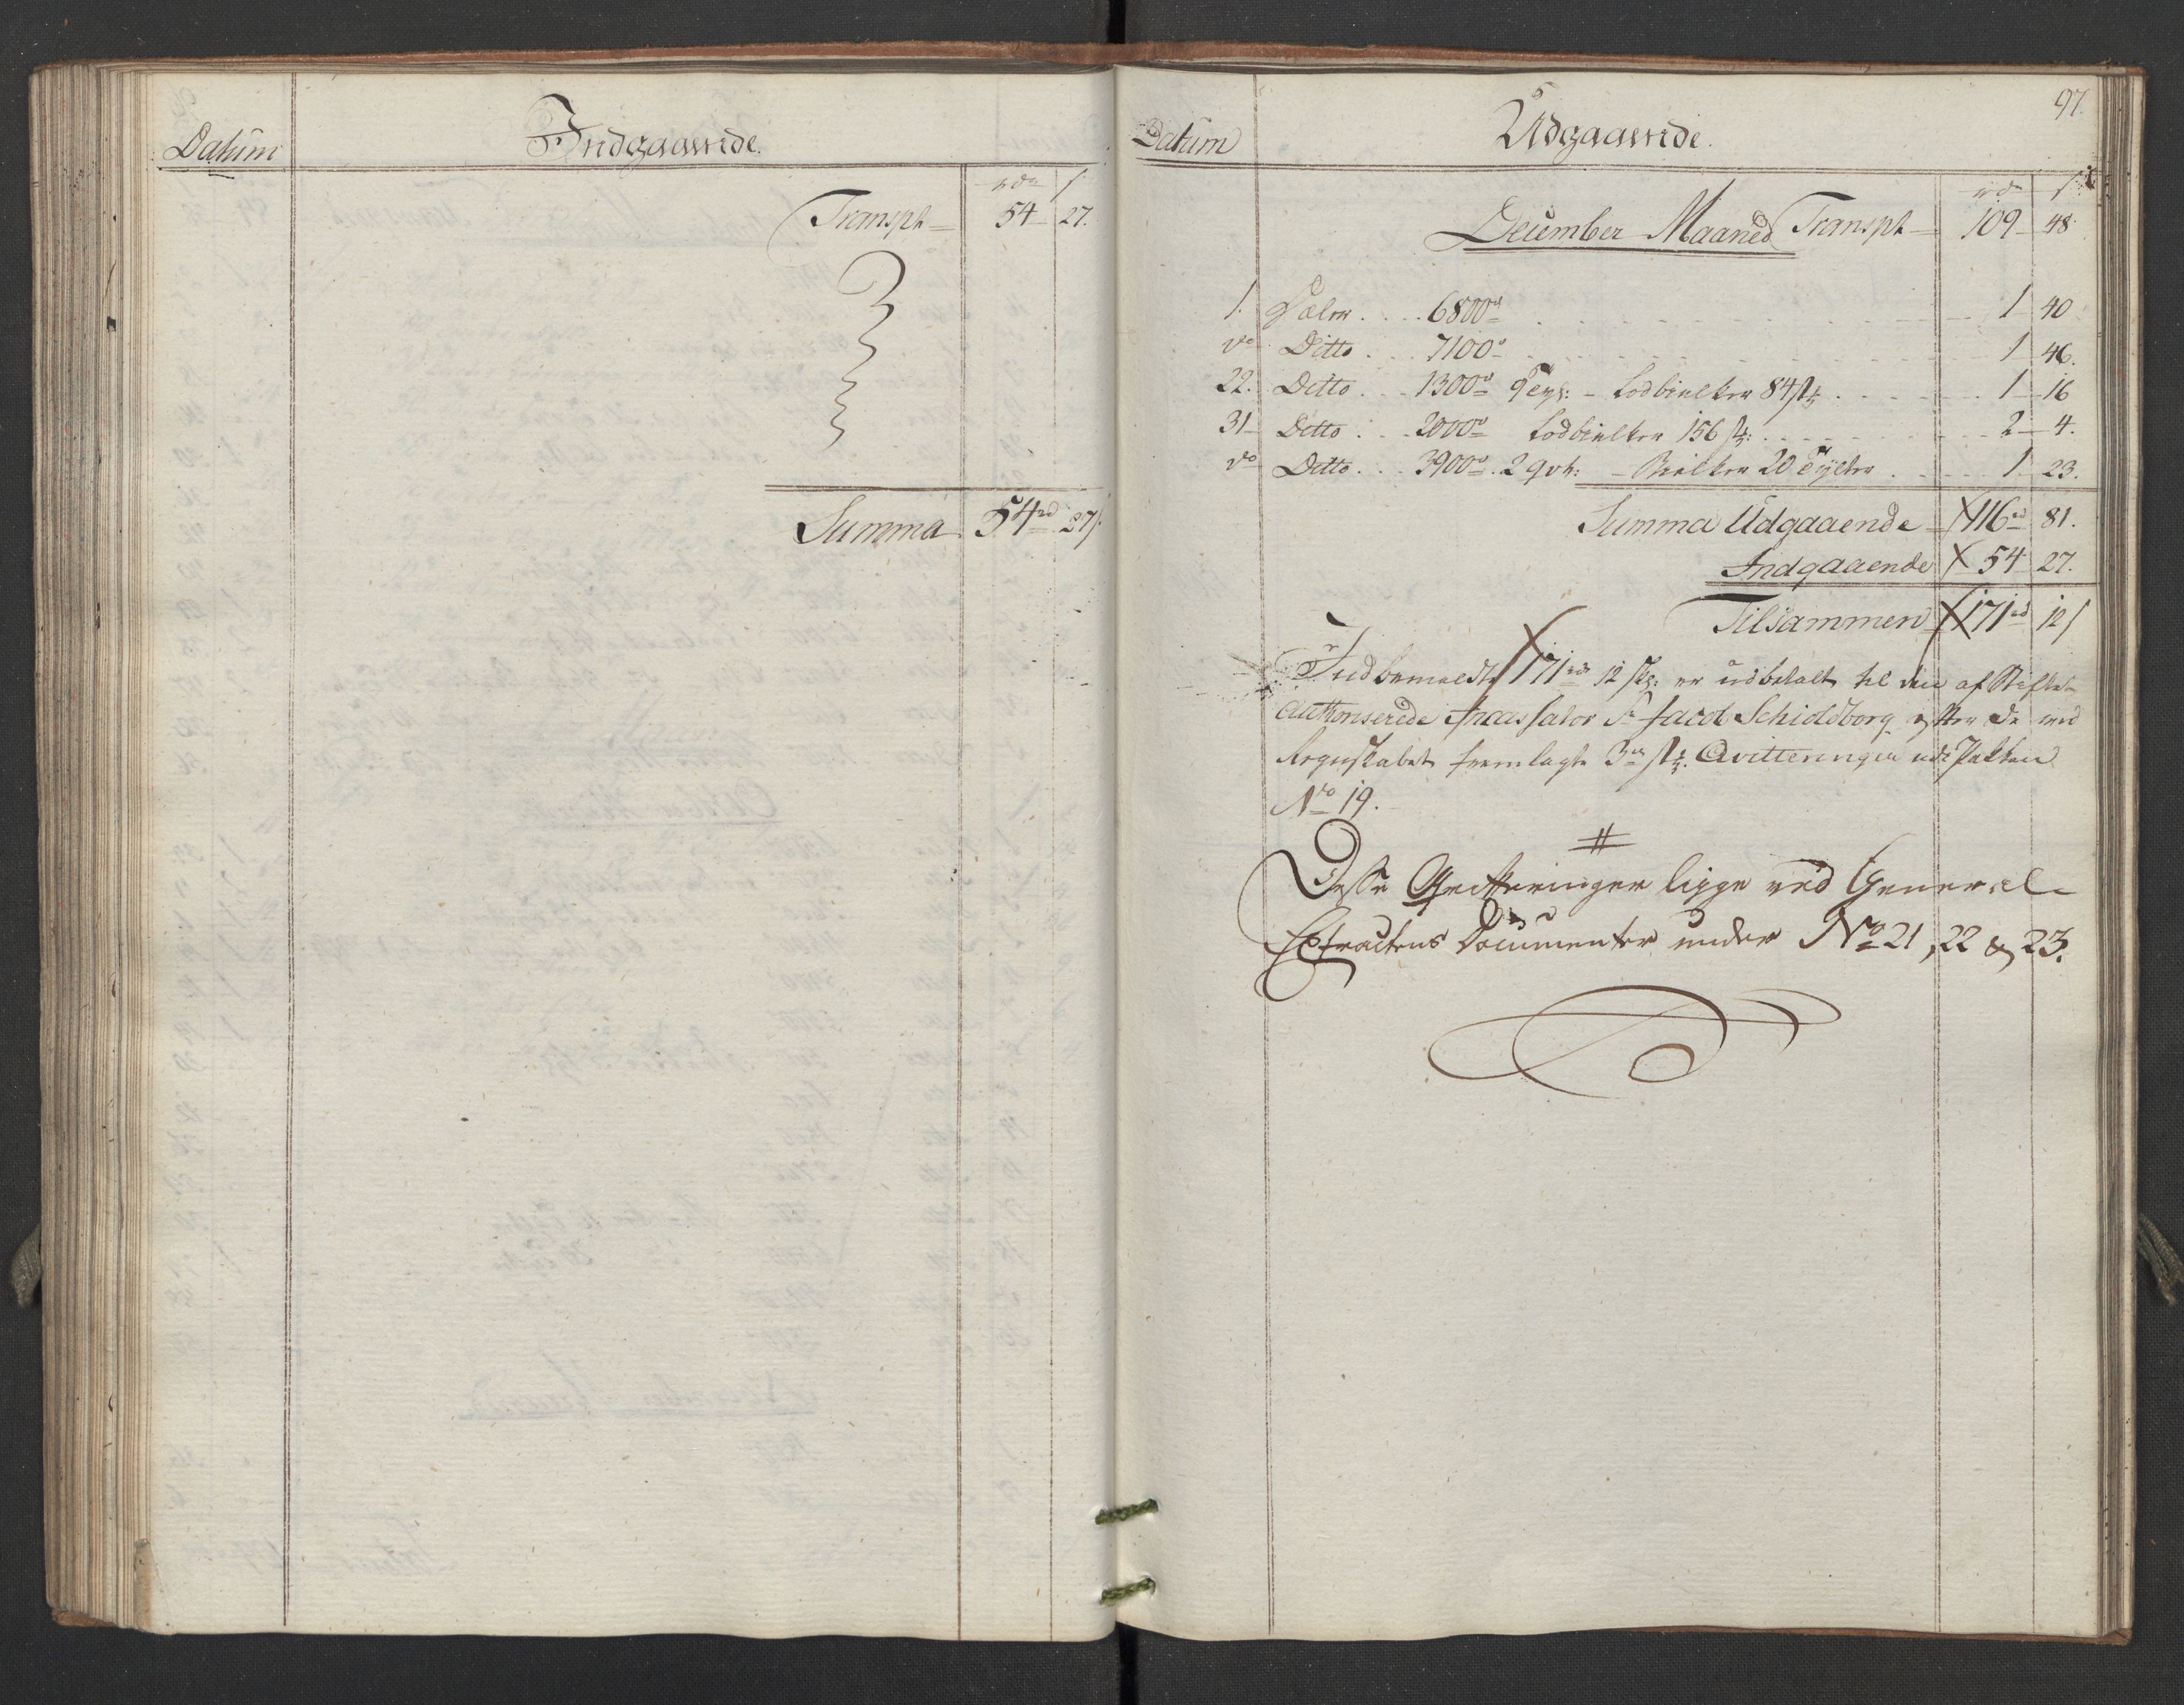 Datum
Indgaaende.
rd s
Transpt 54 27.
Summa 54 rd 27 s
97.
Datum
Udgaaende.
rd s
December Maaned Transpt 109 48
1. 6800 1 40
do Ditto 7100 1 46.
22. Ditto 1300 9 Lodbielker 84 st 1 16
31 Ditto 2000 Lodbielker 156 st: 2 4.
do Ditto 3900. 2 qvt: Bielker 20 Tylter 1 23.
Summa Udgaaende 116 rd 81.
Indgaaende 54 27.
Tilsammen 171 rd 12 s
Indbemeldte 171 rd 12 sk: er udbetalt til den af Stiftet
Authoriserede Incassator Sr Jacob Schiddborg efter de ved
Regnskabet fremlagte 3de st: Qvitteringer udi Pakken
No 19.
#
Disse Qvitteringer ligge ved General-
Extractens Documenter under No 21, 22 & 23.